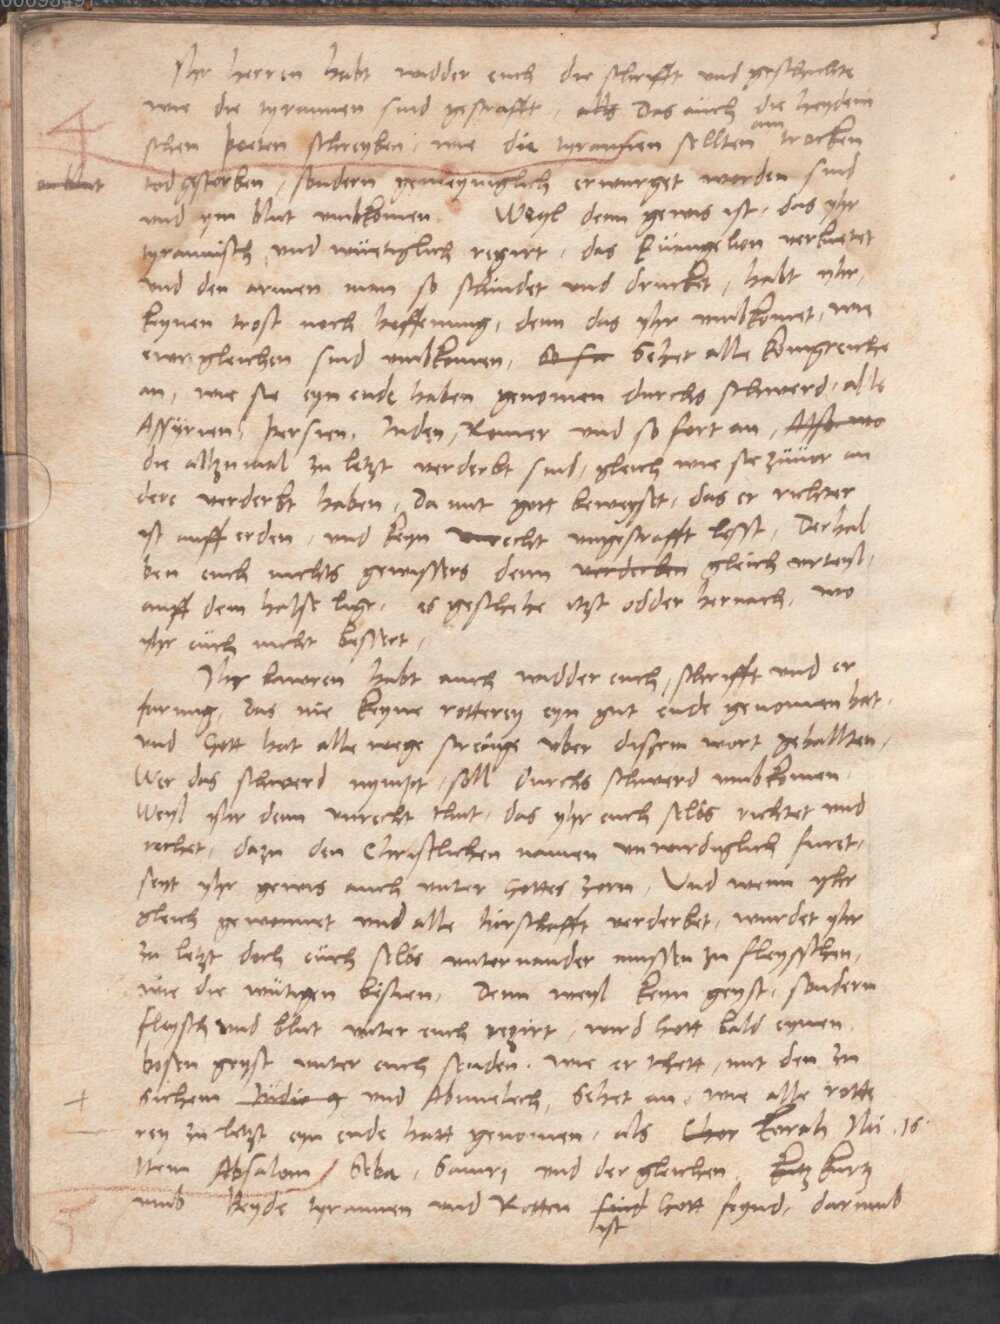 0009549
Ihr herren habt widder euch die schrifft und geschichte
wie die tyrannen sind gestrafft, alls Das auch die heydni
schen Poeten schreyben, wie die tyrannen sellten am trocken
tod gestorben, sondern gemeyniglich erwurget worden sind
und ym blut umbkomen Weyl denn gewis ist, das yhr
tyrannisch und wüetiglich regirt, das Euangelion verbietet
und den armen man so schindet und drucket, habt yhr,
keynen trost noch hoffenung, denn das yhr umbkomet, wie
ewr gleichen sind umbkomen, Sehet alle konigreiche
an, wie sie eyn ende haben genomen durchs schwerd, als
Assyrien, Persien, Juden, Romer und so fort an,
die allzumal zu letzt verderbt sind, gleich wie sie zuuor an
dere verderbt haben, Da mit gott beweyset, das er richter
ist auff erden, und keyn unrecht ungestrafft lesst, Derhal
ben euch nichts gewissers denn verderben gleich urteyl,
auff dem halse ligt, es geschehe itzt odder hernach, wo
yhr euch nicht bessert,
Ihr bawren habt auch widder euch, schrifft und er
farung, Das nie keyne rotterey eyn gut ende genomen hat,
und Gott hat alle wege strenge uber dissem wort gehallten,
Wer das schwerd nympt, soll durchs schwerd umbkomen,
Weyl yhr denn unrecht thut, das yhr euch selbs richtet und
rechet, dazu den Christlichen namen unwirdiglich furet,
seyt yhr gewis auch unter Gottes zorn, Und wenn yhr
gleich gewonnet und alle hirschafft verderbet, wurdet yhr
zu letzt doch euch selbs unternander mussen zu fleysschen,
wie die wütigen bestien, Denn weyl keyn geyst, sondern
fleysch und blut unter euch regirt, wird Gott bald eynen
bosen geyst unter euch senden, wie er thett, mit den zu
Sichem und Abimelech, Sehet an, wie alle rotte
rey zu letzt eyn ende hatt genomen, als Chor Korah Nu .16.
Item Absalom Seba, Samri und der gleichen kurtz
umb beyde tyrannen und Rotten sind Gott feynd, darumb
ist